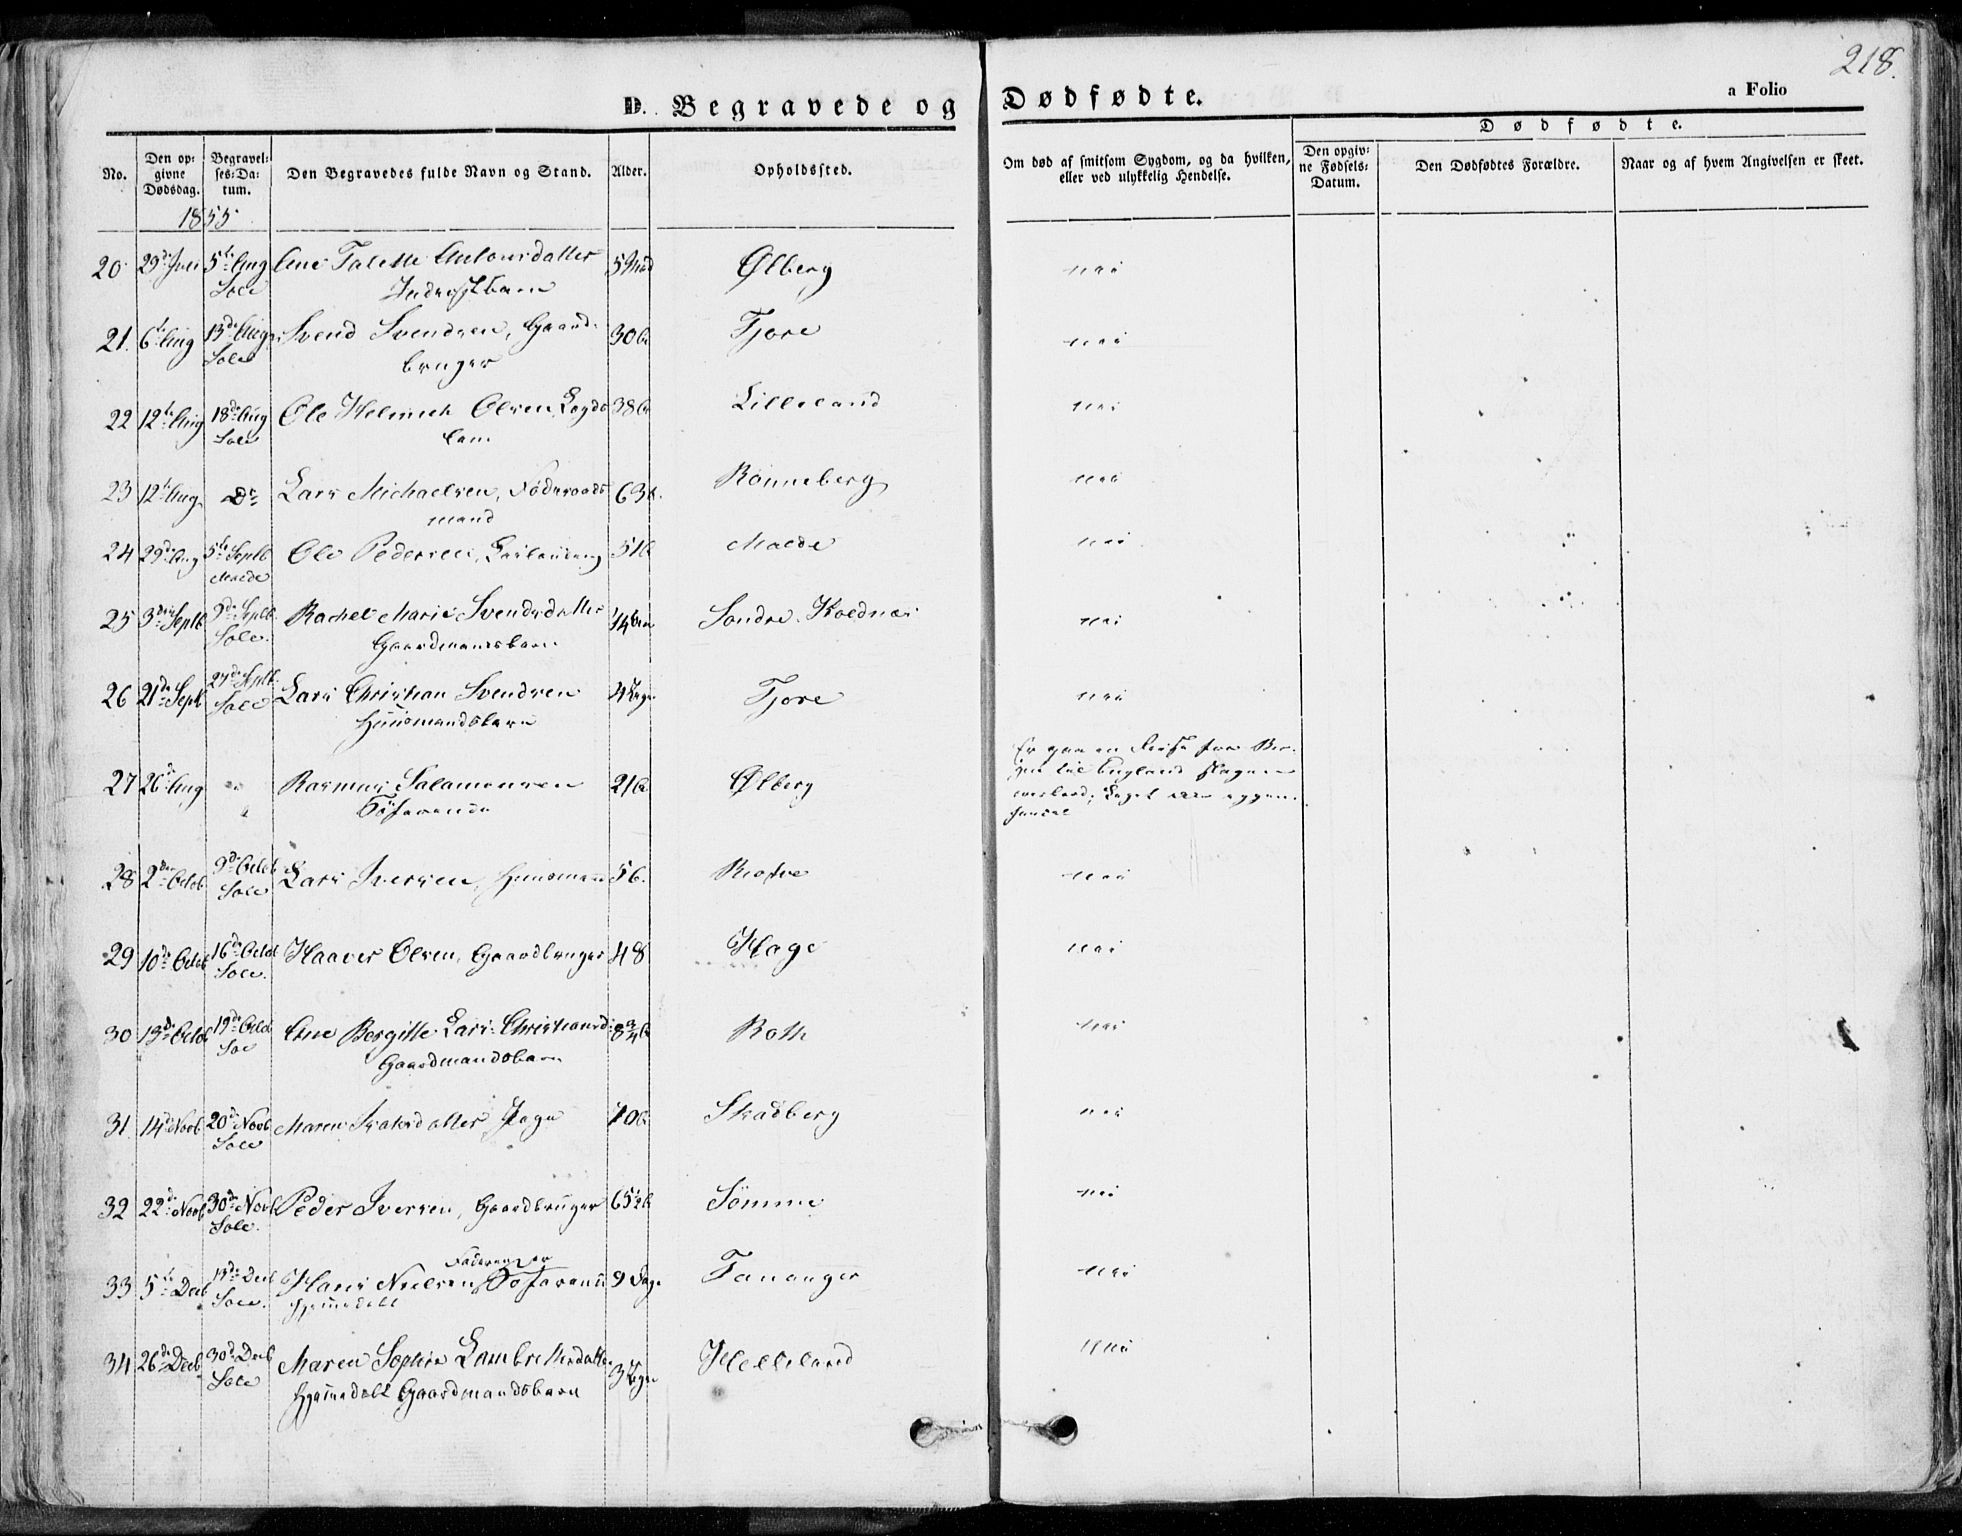 218.
D. Begravede og Dødfødte. a Folio
Dødfødte.
No. Den opgivne Dødsdag. Begravelses-Datum. Den Begravedes fulde Navn og Stand. Alder. Opholdssted. Om død af smitsom Sygdom, og da hvilken, eller ved ulykkelig Hendelse. Den opgivne Fødsels-Datum. Den Dødfødtes Forældre. Naar og af hvem Angivelsen er skeet.
1855
20 29de Juli 5te Aug Ane Talette Antonsdatter 5 Mnd Ølberg nei
Sole
21. 6te Aug 13de Aug Svend Svendsen, Gaard- 30 Tjore nei
Sole bruger
22 12te Aug 18de Aug Ole Helmich Olsen, Lægds 38 Lilleland nei
Sole lem
23 12te Aug Do Lars Michaelsen, Føderaads 63 Rønneberg nei
mand
24 29de Aug 5te Septb Ole Pedersen 51 Malde nei
Malde
25 3die Septb 9de Septb Rachel Marie Svendsdatter 14 Søndre Koldnæs nei
Sole. Gaardmandsbarn
26 21de Sept 27de Septb. Lars Christian Svendsen 4 Dage Tjore nei
Sole Huusmandsbarn
27 26de Aug Rasmus Salamonsen 21 Ølberg Er paa en Reise fra Ber-
Søfarende gen til England slagen
overbord; Liget
28 2den Octob 9de Octob Lars Iversen, Huusmand 56. nei
Sole
29 10de Octob 16de Octob Haaver Olsen, Gaardbruger 48 Hage nei
Sole.
30 13de Octob 19de Octob Ane Bergitte Lars Christiansd: 8 3/4 Roth nei
Gaardmandsbarn
31 14de Novb 20de Novb Maren 70 Skadberg nei
Sole
32 22de Novb 30de Novb Peder Iversen, Gaardbruger 65 1/2 Sømme nei
Sole.
Faderen er
33 5te Decb 13de Decb Hans Nielsen, Søfarende 9 Dage Tananger nei
Sole. hjemmedøbt
34 26de Decb 30de Decb Maren Sophie Lambrethsdatter 3 Dage Helleland nei
Sole hjemmedøbt Gaardmandsbarn